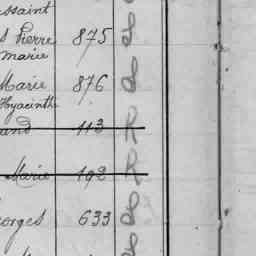 ssaint
s Pierre 875
marie
Marie 876
Hyacinthe
and 113 R
Marie 192 R
eorges 633